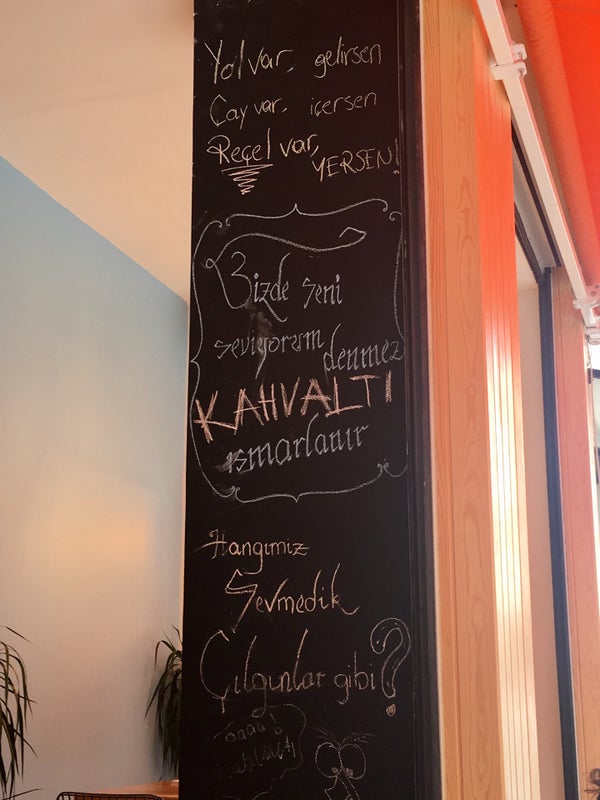 Yol var, gelirsen
Çay var, içersen
Reçel var, YERSEN!
Bizde seni
seviyorum denmez
KAHVALTI
ısmarlanır
Hangimiz
Sevmedik
Çılgınlar gibi?